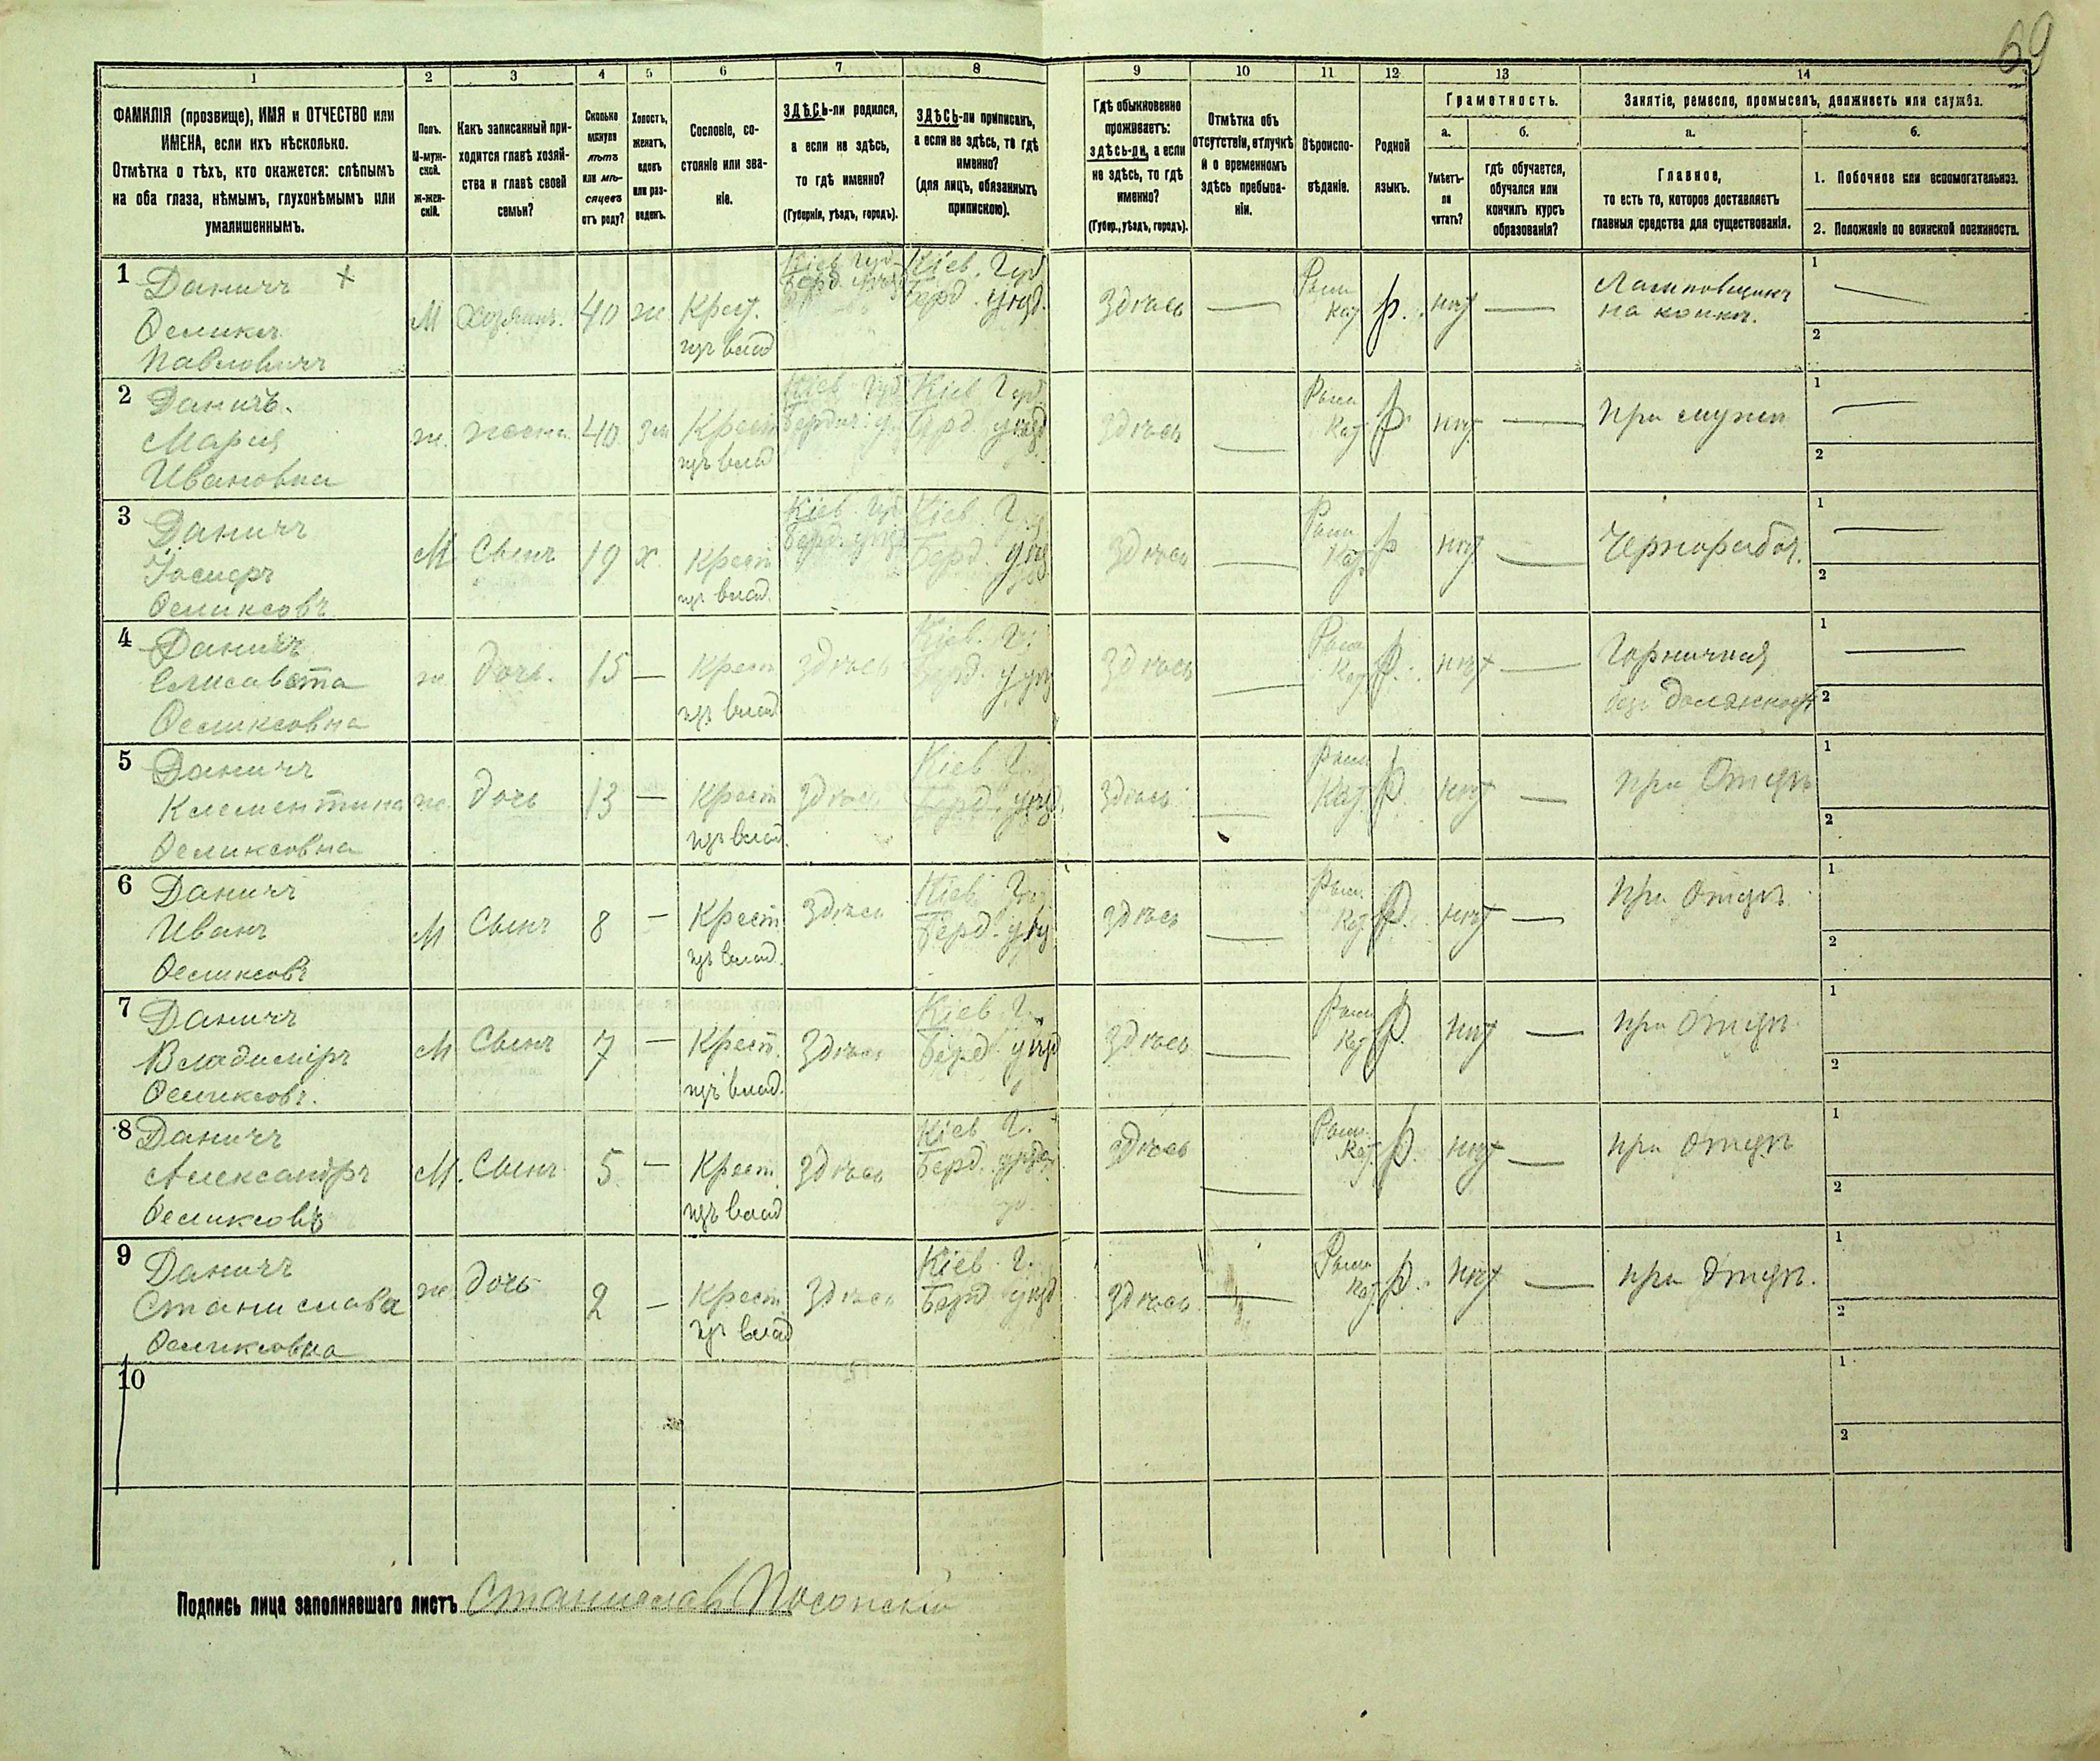 69
1 2 3 4 5 6 7 8 9 10 11 12 13 14
ФАМИЛІЯ (прозвище), ИМЯ и ОТЧЕСТВО или
ИМЕНА, если ихъ нѣсколько.
Отмѣтка о тѣхъ, кто окажется: слѣпымъ
на оба глаза, нѣмымъ, глухонѣмымъ или
умалишеннымъ.
Полъ.
М-муж-
ской.
Ж-жен-
скій.
Какъ записанный при-
ходится главѣ хозяй-
ства и главѣ своей
семьи?
Сколько
минуло
лѣтъ
или мѣ-
сяцевъ
отъ роду?
Холостъ,
женатъ,
вдовъ
или раз-
веденъ.
Сословіе, со-
стояніе или зва-
ніе.
ЗДѢСЬ-ли родился,
а если не здѣсь,
то гдѣ именно?
(Губернія, уѣздъ, городъ).
ЗДѢСЬ-ли приписанъ,
а если не здѣсь, то гдѣ
именно?
(для лицъ, обязанныхъ
припискою).
Гдѣ обыкновенно
проживаетъ:
здѣсь-ли, а если
не здѣсь, то гдѣ
именно?
(Губер., уѣздъ, городъ).
Отмѣтка объ
отсутствіи, отлучкѣ
и о временномъ
здѣсь пребыва-
ніи.
Вѣроиспо-
вѣданіе.
Родной
языкъ.
Грамотность.
а.
Умѣетъ-
ли
читать?
б.
гдѣ обучается,
обучался или
кончилъ курсъ
образованія?
Занятіе, ремесло, промыселъ, должность или служба.
а.
Главное,
то есть то, которое доставляетъ
главныя средства для существованія.
б.
1. Побочное или вспомогательное.
2. Положеніе по воинской повинности.
1 Даничъ +
Феликсъ
Павловичъ
М Хозяинъ. 40 ж Крест.
изъ влад
Кіев. Губ
Берд. уѣзд
Кіев. Губ
Берд. уѣзд.
Здѣсь — Рим
Кат р. нѣт —
на конкѣ.
1 —
2
2 Даничъ.
Марія
Ивановна
ж. жена. 40 зм Крест
изъ влад
Кіев Губ
Бердич. у.
Кіев. Губ
Берд. уѣзд
здѣсь — Рим
Кат р. нѣт — при мужѣ
1 —
2
3 Даничъ
Іосифъ
Феликсовъ
М Сынъ 19 х. Крест
изъ влад.
Кіев. Губ
Берд. уѣзд
Кіев. Г.
Берд. уѣзд
здѣсь — Рим
Кат. р нѣт — Чернорабоч.
1 —
2
4 Даничъ
Елисавета
Феликсовна
ж. дочь. 15 — Крест
изъ влад
здѣсь
Кіев. Г.
Берд. уѣзд
здѣсь — Рим
Кат р. нѣт — Горничная
безъ должност
1 —
2
5 Даничъ
Клементина
Феликсовна
ж дочь 13 — Крест
изъ влад.
здѣсь
Кіев Губ
Берд. уѣзд.
здѣсь — Рим
Кат. р. нѣт — при Отцѣ
1
2
6 Даничъ
Иванъ
Феликсовъ
М Сынъ 8 — Крест
изъ влад.
здѣсь
Кіев Губ
Берд. уѣзд
здѣсь — Рим.
Кат р. нѣт — при Отцѣ
1
2
7 Даничъ
Владиміръ
Феликсовъ.
М Сынъ 7 — Крест.
изъ влад.
здѣсь
Кіев. Г.
Берд. уѣзд
здѣсь — Рим
Кат р. нѣт — при Отцѣ
1
2
8 Даничъ
Александръ
Феликсовъ
М. Сынъ 5 — Крест.
изъ влад
здѣсь
Кіев Г.
Берд. уѣзд
здѣсь — Рим.
Кат. р. нѣт — при Отцѣ
1
2
9 Даничъ
Станислава
Феликсовна
ж дочь 2 — Крест.
изъ влад
здѣсь
Кіев. Г.
Берд уѣзд
здѣсь — Рим
Кат р. нѣт — при Отцѣ.
1
2
10
1
2
Подпись лица заполнявшаго листъ Станиславъ